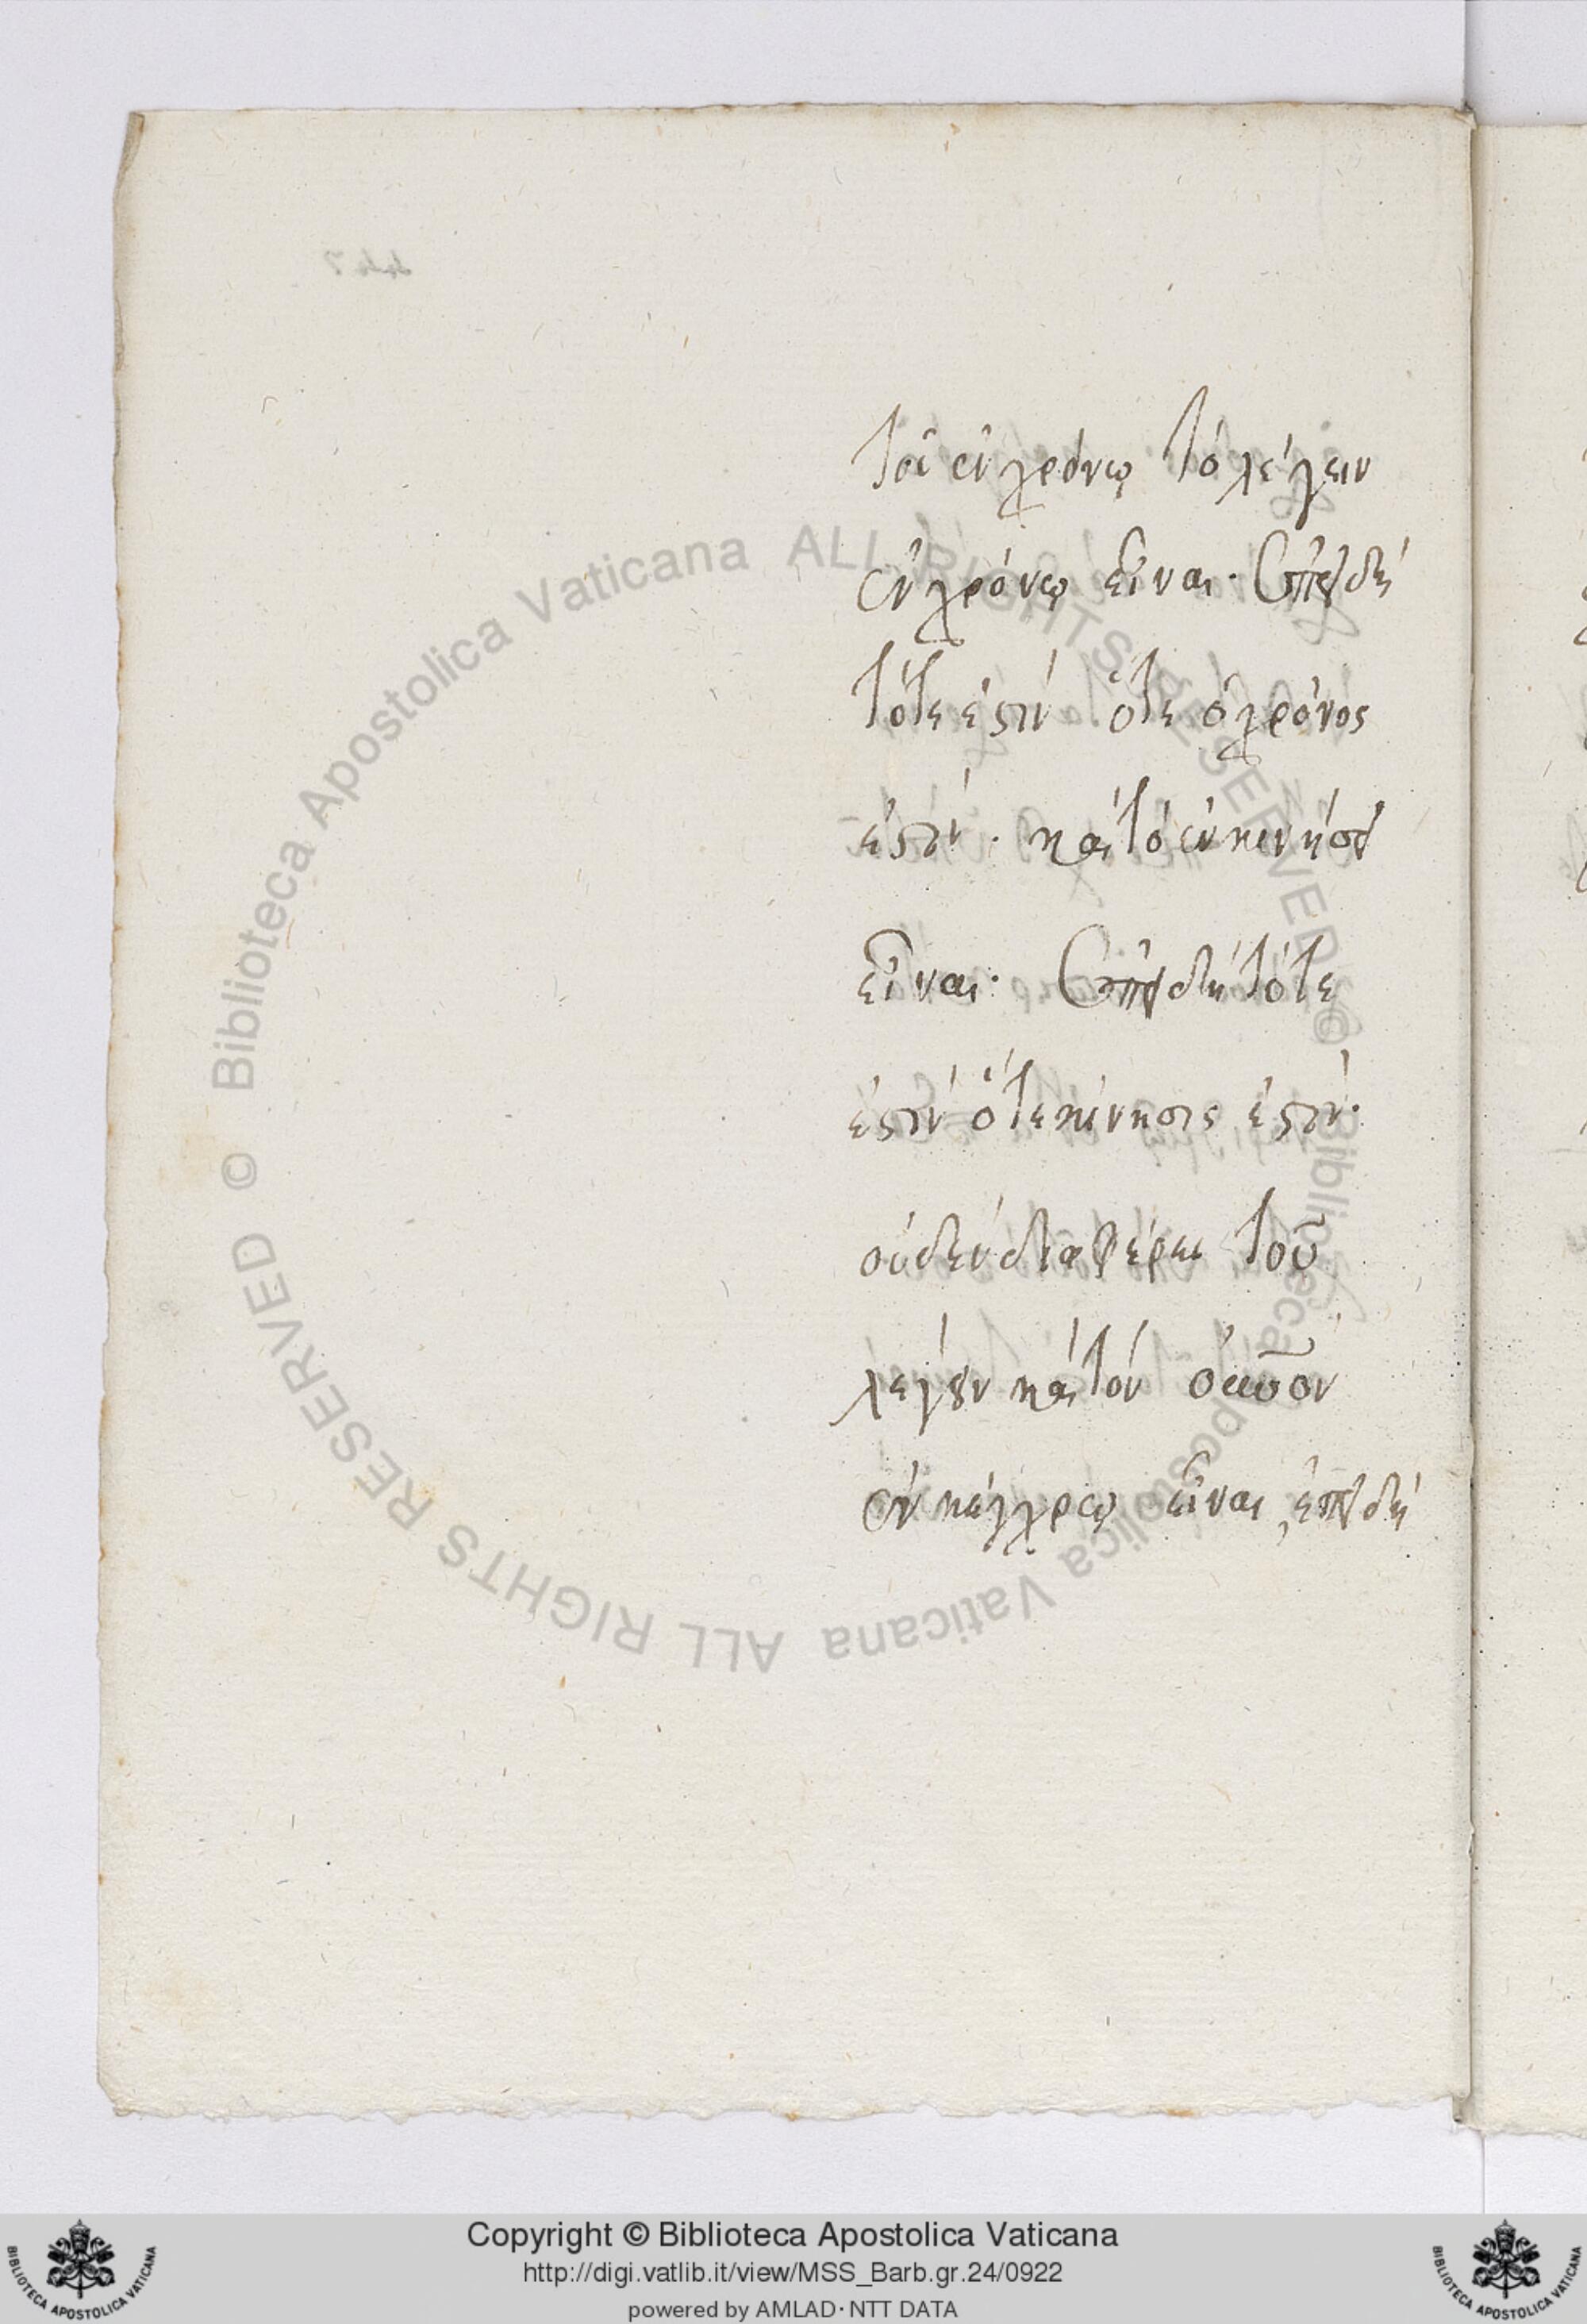 τοι ἐν χρόνῳ τὸ λέγειν
ἐν χρόνῳ εἶναι· ἐπειδὴ
τότε ἐστὶν ὅτε ὁ χρόνος
ἐστίν· καὶ τὸ ἐν κινήσει
εἶναι· ἐπειδὴ τότε
ἐστὶν ὅτε κίνησις ἐστίν·
οὐδὲν διαφέρει τοῦ
λέγειν καὶ τὸν οὐρανὸν
ἐν κέγχρῳ εἶναι, ἐπειδὴ
447
© Biblioteca Apostolica Vaticana ALL RIGHTS RESERVED © Biblioteca Apostolica Vaticana ALL RIGHTS RESERVED
Copyright © Biblioteca Apostolica Vaticana
http://digi.vatlib.it/view/MSS_Barb.gr.24/0922
powered by AMLAD·NTT DATA
BIBLIOTECA APOSTOLICA VATICANA
BIBLIOTECA APOSTOLICA VATICANA